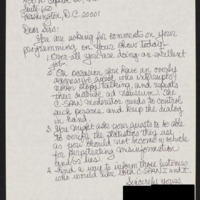 Suite 650
Washington, D.C. 20001
Dear Sirs:
You are asking for comments on your
programming on your show today!
1. Over all you are doing an excellent
job.
2. On occasion, you have an overly
aggressive guest, who
never stops talking, and repeats
their subject ad nauseum. The
C-SPAN moderator needs to control
such persons, and keep the dialog
in hand.
3. You might ask your guests to be able
to verify the statistics they use,
as you should not become a vehicle
for perpetuating misinformation
and/or lies.
4. Find a way to inform those listeners
who would like both C-SPAN I and II.
Sincerely yours